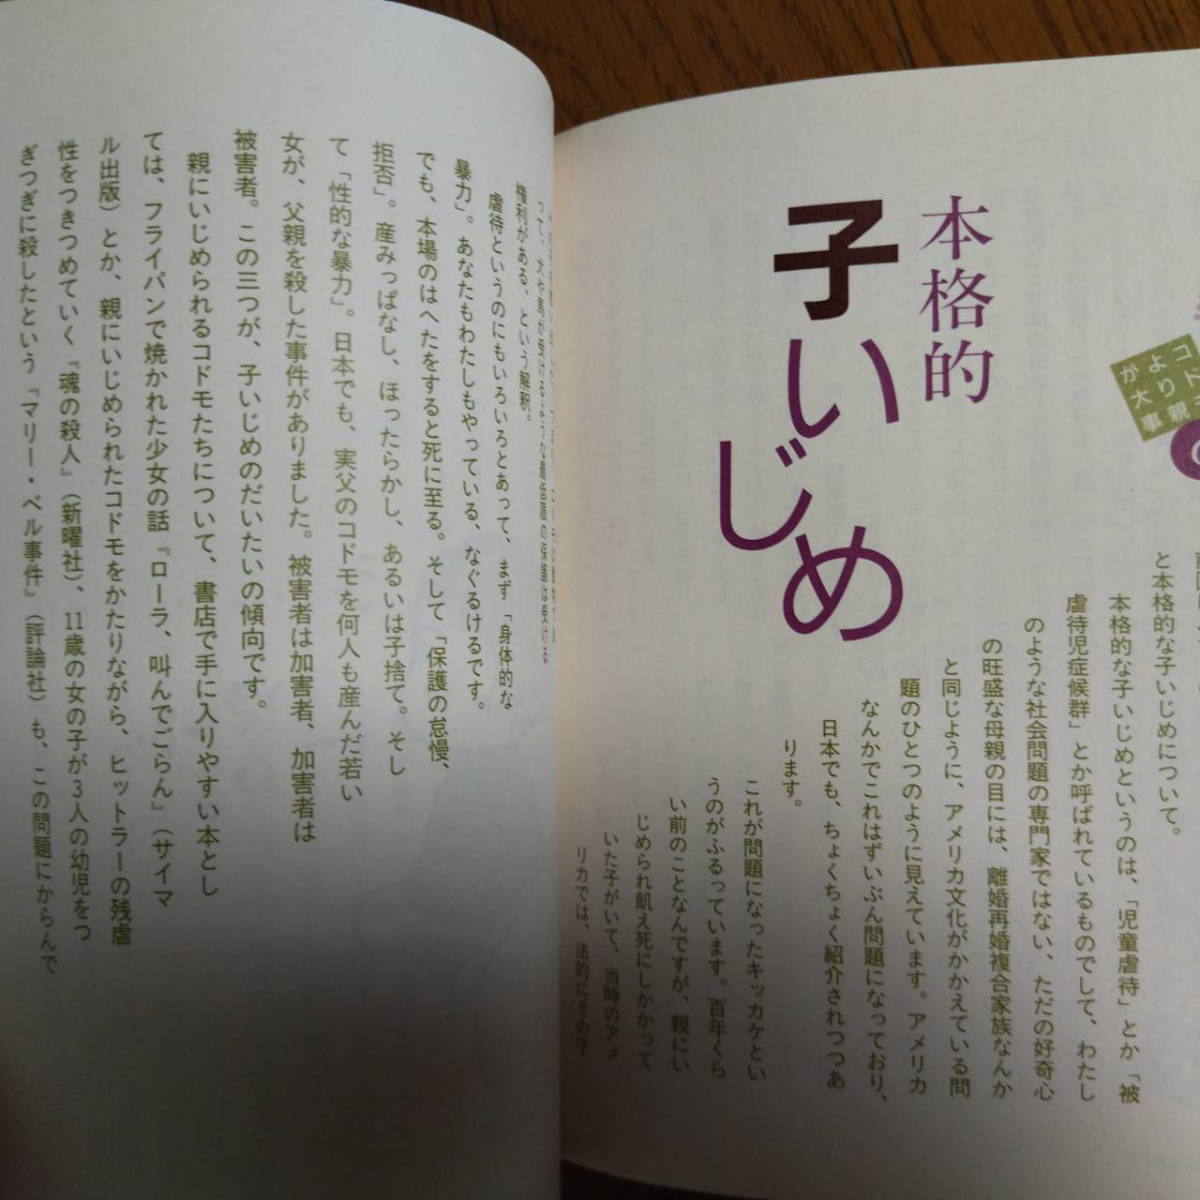 コドモ
より親
が大事
本格的
子いじめ
と本格的な子いじめについて。
本格的な子いじめというのは、「児童虐待」とか「被
虐待児症候群」とか呼ばれているものでして、わたし
のような社会問題の専門家ではない、ただの好奇心
の旺盛な母親の目には、離婚再婚複合家族なんか
と同じように、アメリカ文化がかかえている問
題のひとつのように見えています。アメリカ
なんかでこれはずいぶん問題になっており、
日本でも、ちょくちょく紹介されつつあ
ります。
これが問題になったキッカケとい
うのがふるっています。百年くら
い前のことなんですが、親にい
じめられ飢え死にしかかって
いた子がいて、当時のアメ
リカでは、法的にその子
権利がある、という解釈。
虐待というのにもいろいろとあって、まず「身体的な
暴力」。あなたもわたしもやっている、なぐるけるです。
でも、本場のはへたをすると死に至る。そして「保護の怠慢、
拒否」。産みっぱなし、ほったらかし、あるいは子捨て。そし
て「性的な暴力」。日本でも、実父のコドモを何人も産んだ若い
女が、父親を殺した事件がありました。被害者は加害者、加害者は
被害者。この三つが、子いじめのだいたいの傾向です。
親にいじめられるコドモたちについて、書店で手に入りやすい本とし
ては、フライパンで焼かれた少女の話『ローラ、叫んでごらん』（サイマ
ル出版）とか、親にいじめられたコドモをかたりながら、ヒットラーの残虐
性をつきつめていく『魂の殺人』（新曜社）、11歳の女の子が3人の幼児をつ
ぎつぎに殺したという『マリー・ベル事件』（評論社）も、この問題にからんで